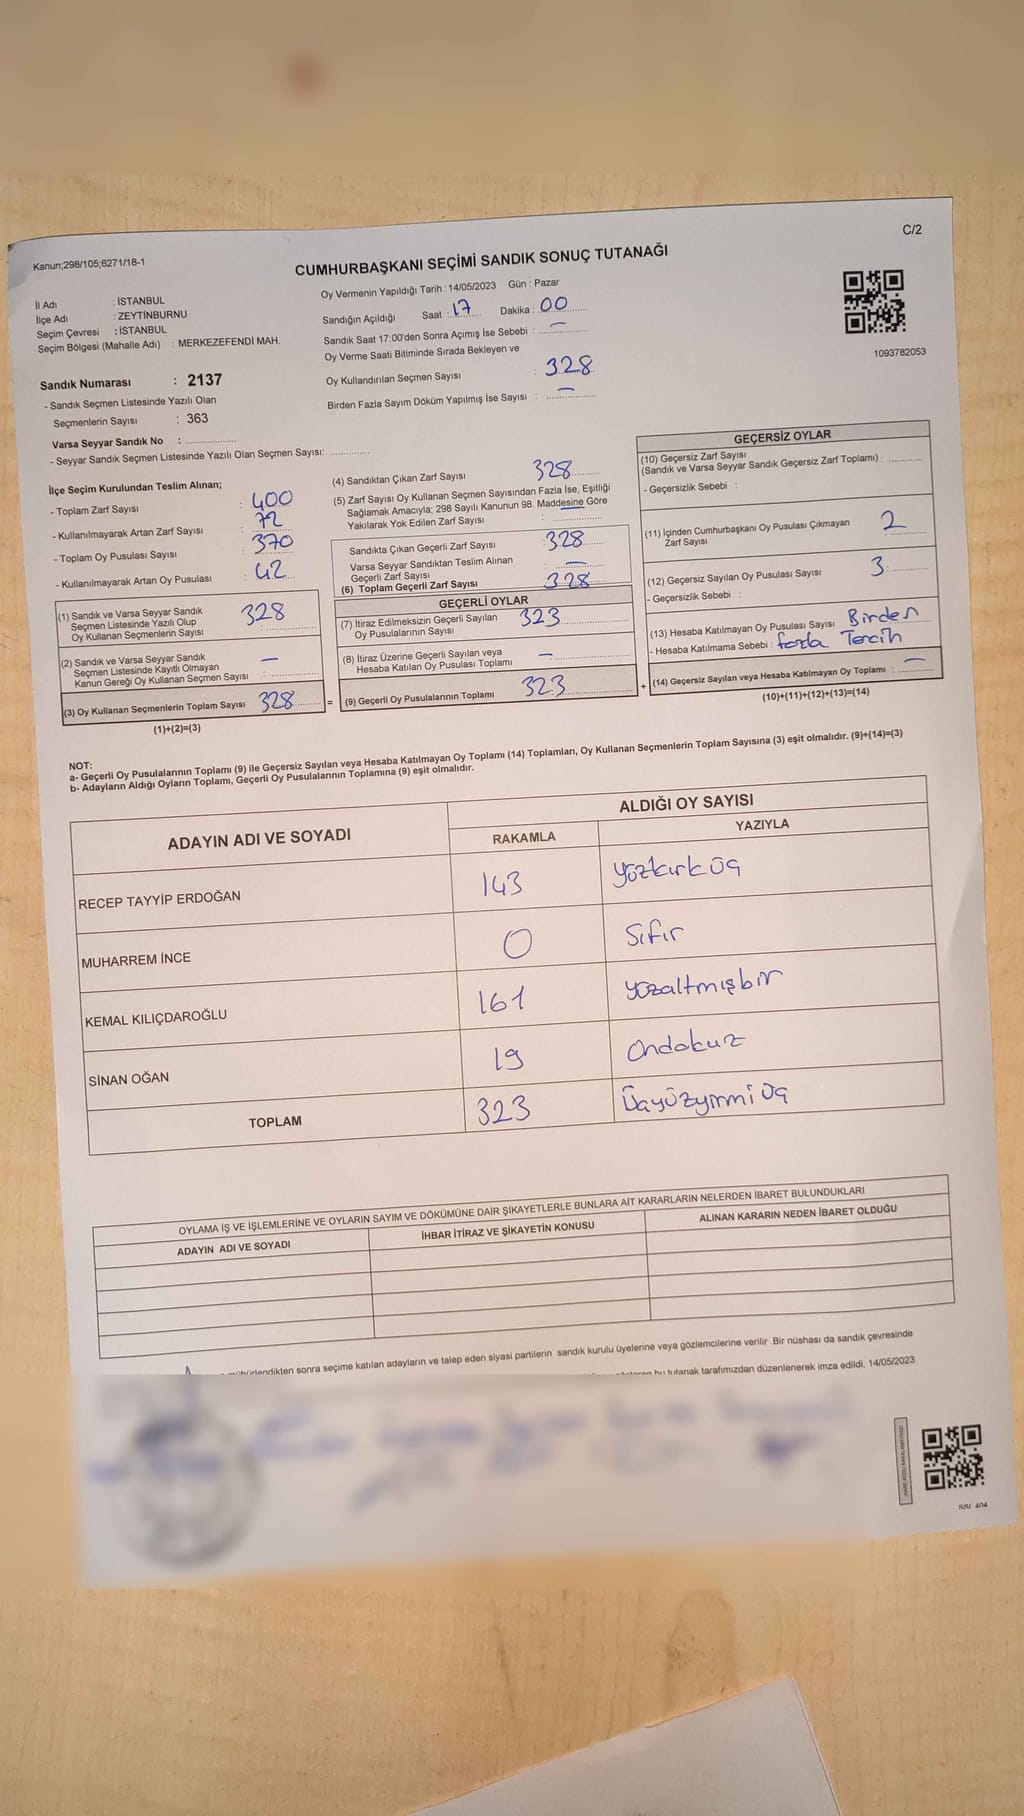 C/2
Kanun;298/105;6271/18-1
CUMHURBAŞKANI SEÇİMİ SANDIK SONUÇ TUTANAĞI
İl Adı : İSTANBUL
İlçe Adı : ZEYTİNBURNU
Seçim Çevresi : İSTANBUL
Seçim Bölgesi (Mahalle Adı) : MERKEZEFENDİ MAH.
Sandık Numarası : 2137
- Sandık Seçmen Listesinde Yazılı Olan
Seçmenlerin Sayısı : 363
Varsa Seyyar Sandık No :
- Seyyar Sandık Seçmen Listesinde Yazılı Olan Seçmen Sayısı:
Oy Vermenin Yapıldığı Tarih : 14/05/2023 Gün : Pazar
Sandığın Açıldığı Saat : 17 Dakika : 00
Sandık Saat 17:00'den Sonra Açımış İse Sebebi : —
Oy Verme Saati Bitiminde Sırada Bekleyen ve
Oy Kullandırılan Seçmen Sayısı : 328
Birden Fazla Sayım Döküm Yapılmış İse Sayısı : —
1093782053
İlçe Seçim Kurulundan Teslim Alınan;
- Toplam Zarf Sayısı : 400
- Kullanılmayarak Artan Zarf Sayısı : 72
- Toplam Oy Pusulası Sayısı : 370
- Kullanılmayarak Artan Oy Pusulası : 42
(1) Sandık ve Varsa Seyyar Sandık
Seçmen Listesinde Yazılı Olup
Oy Kullanan Seçmenlerin Sayısı : 328
(2) Sandık ve Varsa Seyyar Sandık
Seçmen Listesinde Kayıtlı Olmayan
Kanun Gereği Oy Kullanan Seçmen Sayısı : —
(3) Oy Kullanan Seçmenlerin Toplam Sayısı 328
(1)+(2)=(3)
(4) Sandıktan Çıkan Zarf Sayısı 328
(5) Zarf Sayısı Oy Kullanan Seçmen Sayısından Fazla İse, Eşitliği
Sağlamak Amacıyla; 298 Sayılı Kanunun 98. Maddesine Göre
Yakılarak Yok Edilen Zarf Sayısı :
Sandıkta Çıkan Geçerli Zarf Sayısı : 328
Varsa Seyyar Sandıktan Teslim Alınan
Geçerli Zarf Sayısı : —
(6) Toplam Geçerli Zarf Sayısı 328
GEÇERLİ OYLAR
(7) İtiraz Edilmeksizin Geçerli Sayılan
Oy Pusulalarının Sayısı 323
(8) İtiraz Üzerine Geçerli Sayılan veya
Hesaba Katılan Oy Pusulası Toplamı : —
(9) Geçerli Oy Pusulalarının Toplamı 323
GEÇERSİZ OYLAR
(10) Geçersiz Zarf Sayısı
(Sandık ve Varsa Seyyar Sandık Geçersiz Zarf Toplamı) :
- Geçersizlik Sebebi :
(11) İçinden Cumhurbaşkanı Oy Pusulası Çıkmayan
Zarf Sayısı : 2
(12) Geçersiz Sayılan Oy Pusulası Sayısı : 3
- Geçersizlik Sebebi :
(13) Hesaba Katılmayan Oy Pusulası Sayısı Birden
- Hesaba Katılmama Sebebi : fazla Tercih
(14) Geçersiz Sayılan veya Hesaba Katılmayan Oy Toplamı : —
(10)+(11)+(12)+(13)=(14)
NOT:
a- Geçerli Oy Pusulalarının Toplamı (9) ile Geçersiz Sayılan veya Hesaba Katılmayan Oy Toplamı (14) Toplamları, Oy Kullanan Seçmenlerin Toplam Sayısına (3) eşit olmalıdır. (9)+(14)=(3)
b- Adayların Aldığı Oyların Toplamı, Geçerli Oy Pusulalarının Toplamına (9) eşit olmalıdır.
ADAYIN ADI VE SOYADI ALDIĞI OY SAYISI
RAKAMLA YAZIYLA
RECEP TAYYİP ERDOĞAN 143 yüzkırküç
MUHARREM İNCE 0 Sıfır
KEMAL KILIÇDAROĞLU 161 yüzaltmışbir
SİNAN OĞAN 19 Ondokuz
TOPLAM 323 Üçyüzyirmi üç
OYLAMA İŞ VE İŞLEMLERİNE VE OYLARIN SAYIM VE DÖKÜMÜNE DAİR ŞİKAYETLERLE BUNLARA AİT KARARLARIN NELERDEN İBARET BULUNDUKLARI
ADAYIN ADI VE SOYADI İHBAR İTİRAZ VE ŞİKAYETİN KONUSU ALINAN KARARIN NEDEN İBARET OLDUĞU
sonra seçime katılan adayların ve talep eden siyasi partilerin sandık kurulu üyelerine veya gözlemcilerine verilir .Bir nüshası da sandık çevresinde
bu tutanak tarafımızdan düzenlenerek imza edildi. 14/05/2023